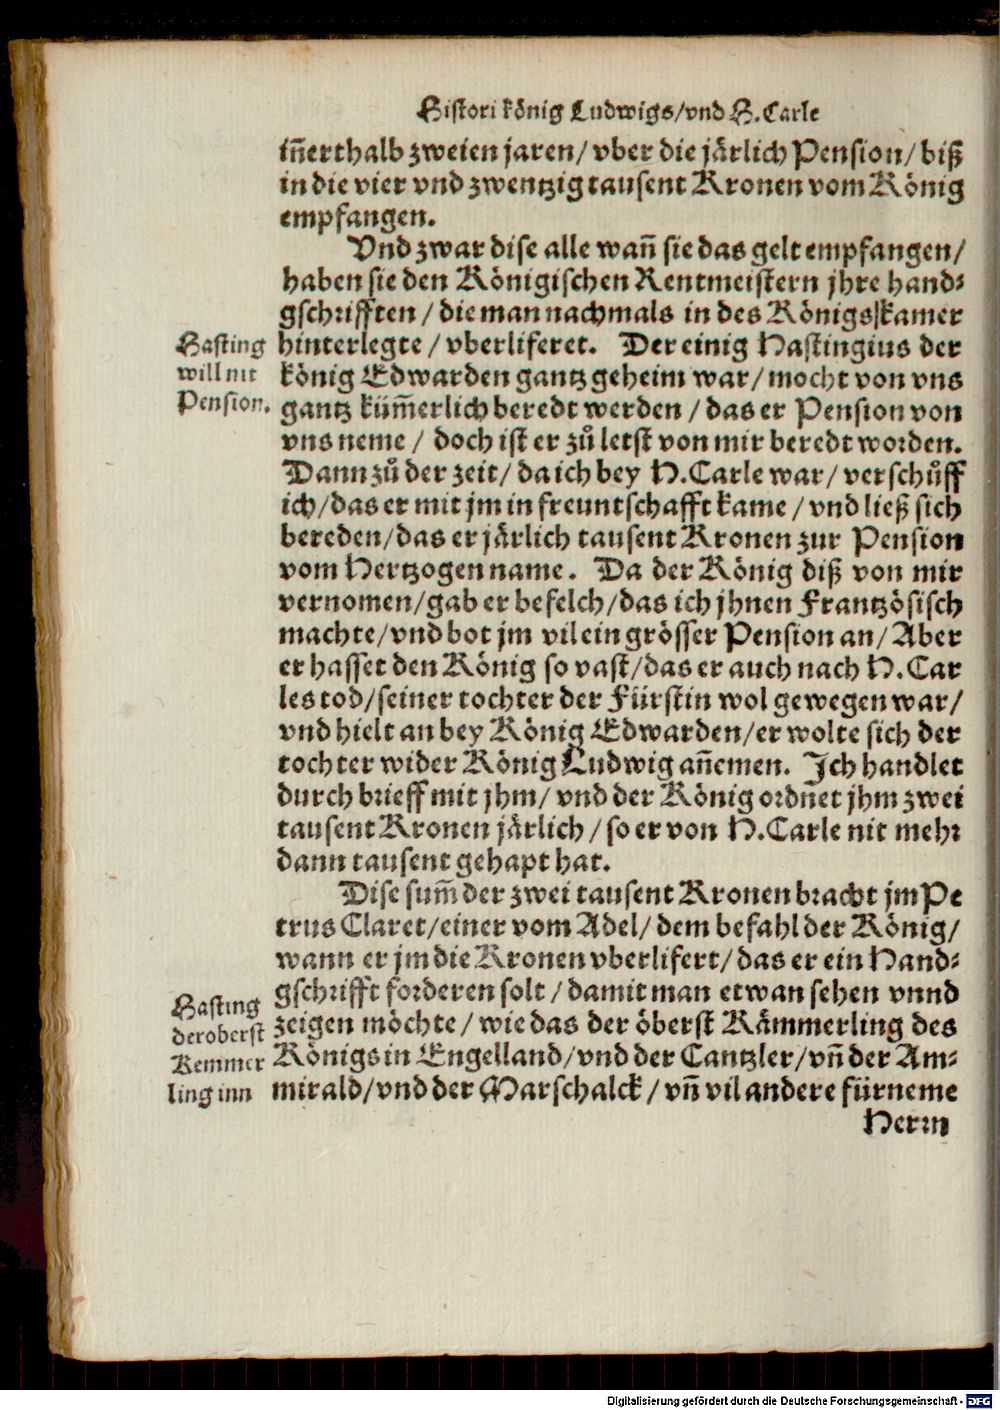 Histori könig Ludwigs/vnd H. Carle
iñerthalb zweien jaren/ vber die järlich Pension/ biß
in die vier vnd zwentzig tausent Kronen vom König
empfangen.
Vnd zwar dise alle wañ sie das gelt empfangen/
haben sie den Königischen Rentmeistern jhre hand⸗
gschrifften/ die man nachmals in des Königs kamer
hinterlegte/ vberliferet. Der einig Hastingius der
könig Edwarden gantz geheim war/ mocht von vns
gantz küm̃erlich beredt werden/ das er Pension von
vns neme/ doch ist er zů letst von mir beredt worden.
Dann zů der zeit/ da ich bey H. Carle war/ verschůff
ich/das er mit jm in freuntschafft kame/ vnd ließ sich
bereden/das er järlich tausent Kronen zur Pension
vom Hertzogen name. Da der König diß von mir
vernomen/gab er befelch/das ich jhnen Frantzösisch
machte/vnd bot jm vil ein grösser Pension an/ Aber
er hasset den König so vast/das er auch nach H. Car
les tod/seiner tochter der Fürstin wol gewegen war/
vnd hielt an bey König Edwarden/er wolte sich der
tochter wider König Ludwig añemen. Ich handlet
durch brieff mit jhm/ vnd der König ordnet jhm zwei
tausent Kronen järlich/ so er von H. Carle nit mehr
dann tausent gehapt hat.
Dise sum̃ der zwei tausent Kronen bracht jm Pe
trus Claret/einer vom Adel/ dem befahl der König/
wann er jm die Kronen vberlifert/das er ein Hand⸗
gschrifft forderen solt/ damit man etwan sehen vnnd
zeigen möchte/ wie das der öberst Kämmerling des
Königs in Engelland/vnd der Cantzler/vñ der Am⸗
mirald/vnd der Marschalck/ vñ vil andere fürneme
Herrn
Hasting
will nit
Pension.
Hasting
der oberst
Kemmer
ling inn
Digitalisierung gefördert durch die Deutsche Forschungsgemeinschaft - DFG